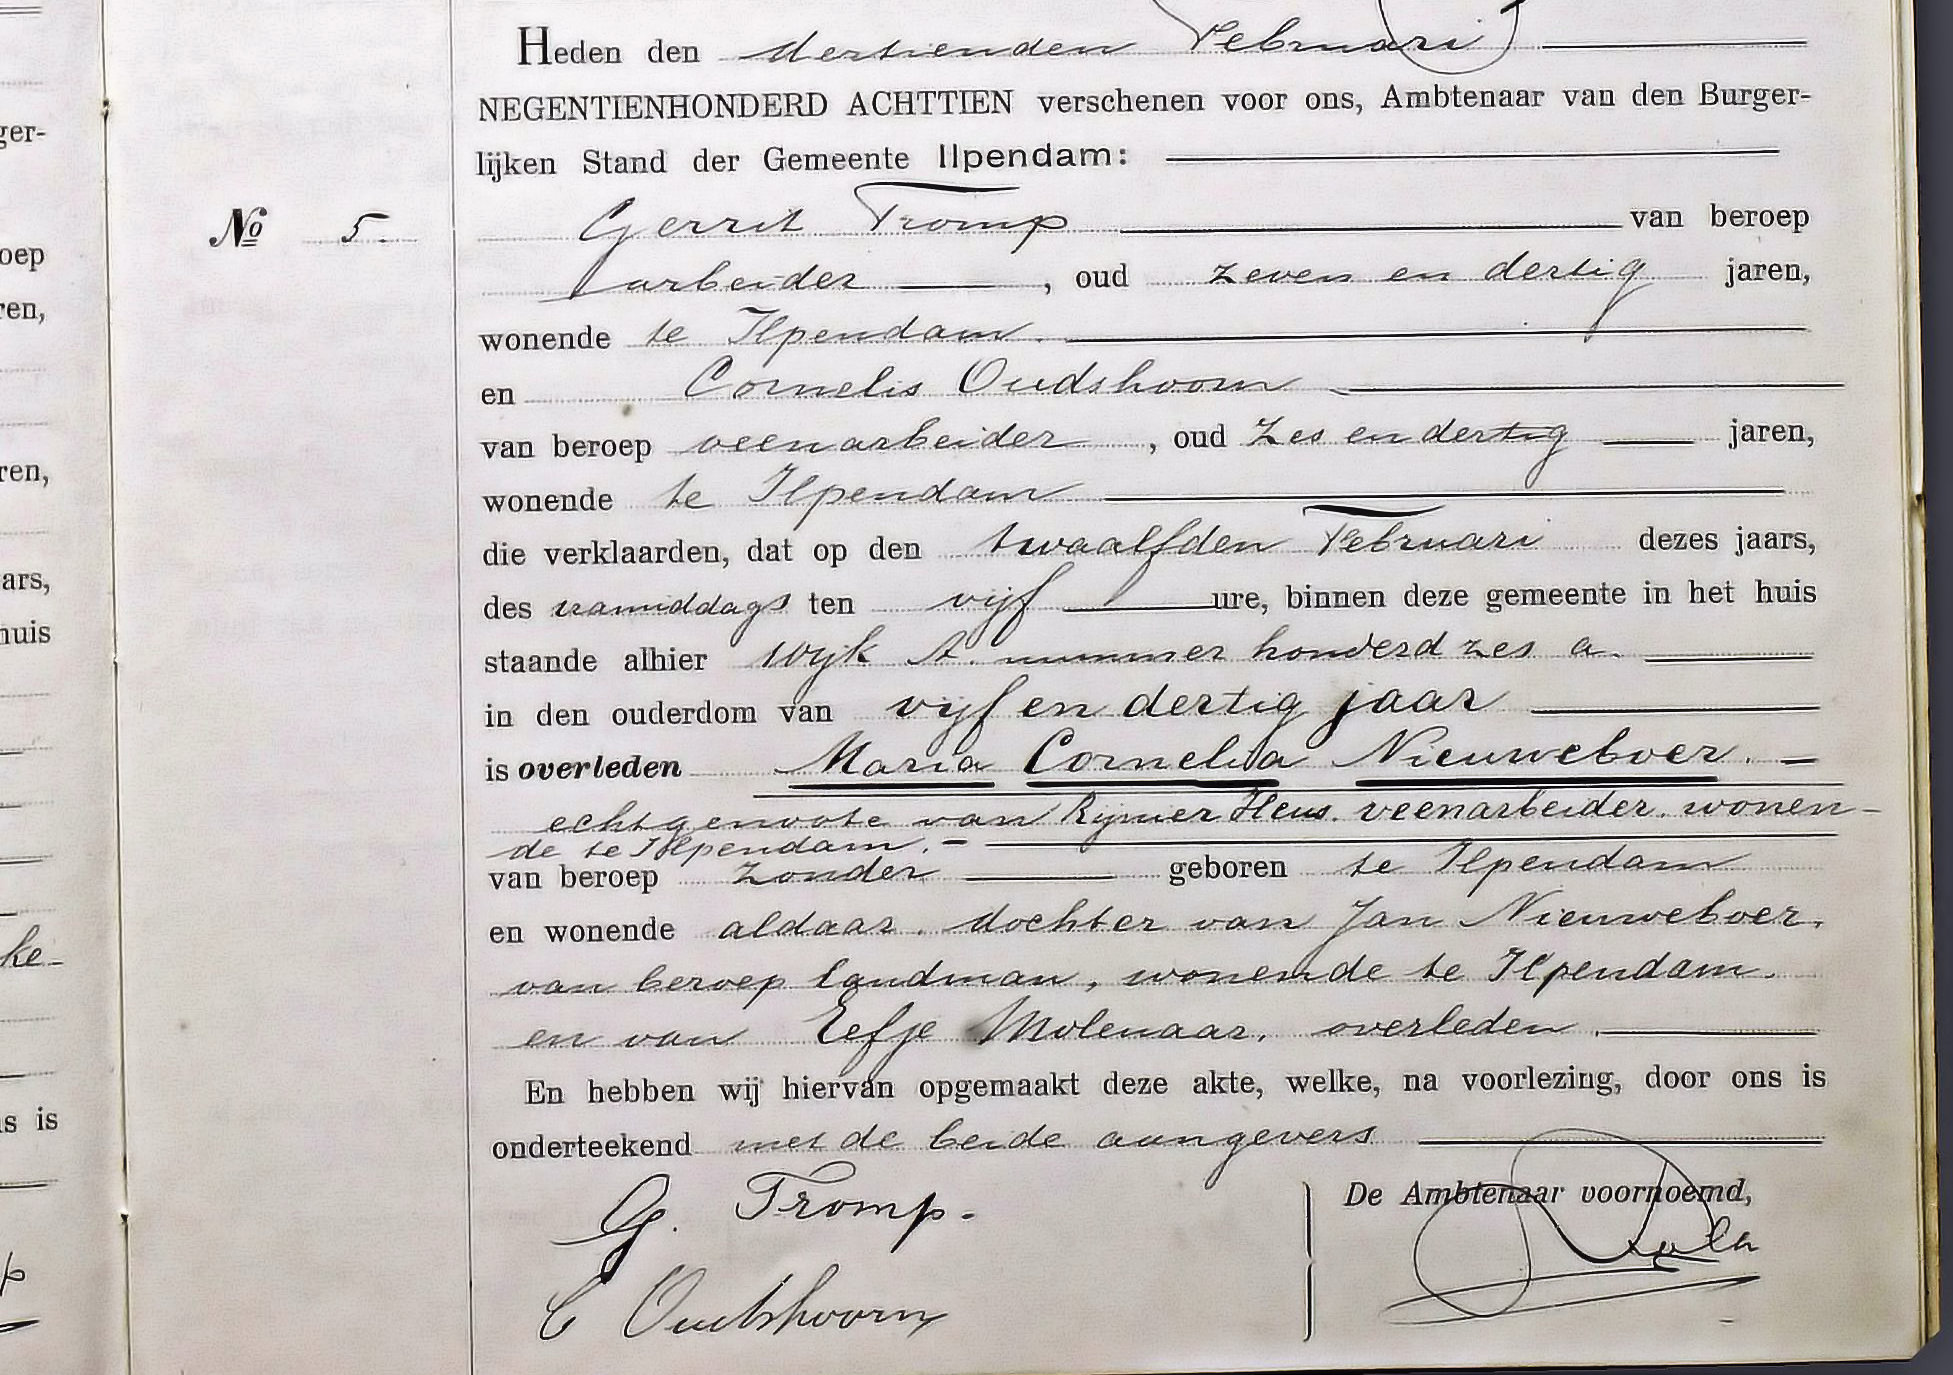 Heden den dertienden Februari
NEGENTIENHONDERD ACHTTIEN verschenen voor ons, Ambtenaar van den Burger-
lijken Stand der Gemeente Ilpendam:
No 5. Gerrit Tromp van beroep
arbeider, oud zeven en dertig jaren,
wonende te Ilpendam.
en Cornelis Oudshoorn
van beroep veenarbeider, oud zes en dertig jaren,
wonende te Ilpendam
die verklaarden, dat op den twaalfden Februari dezes jaars,
des namiddags ten vijf ure, binnen deze gemeente in het huis
staande alhier wijk A. nummer honderd zes a.
in den ouderdom van vijf en dertig jaar
is overleden Maria Cornelia Nieuweboer.
echtgenoote van Rijmer Heus. veenarbeider. wonen-
de te Ilpendam.
van beroep zonder geboren te Ilpendam
en wonende aldaar. dochter van Jan Nieuweboer,
van beroep landman, wonende te Ilpendam.
en van Eefje Molenaar, overleden.
En hebben wij hiervan opgemaakt deze akte, welke, na voorlezing, door ons is
onderteekend met de beide aangevers
G. Tromp.
De Ambtenaar voornoemd,
C Oudshoorn
ger-
oep
ren,
ren,
ars,
huis
ke-
ns is
p